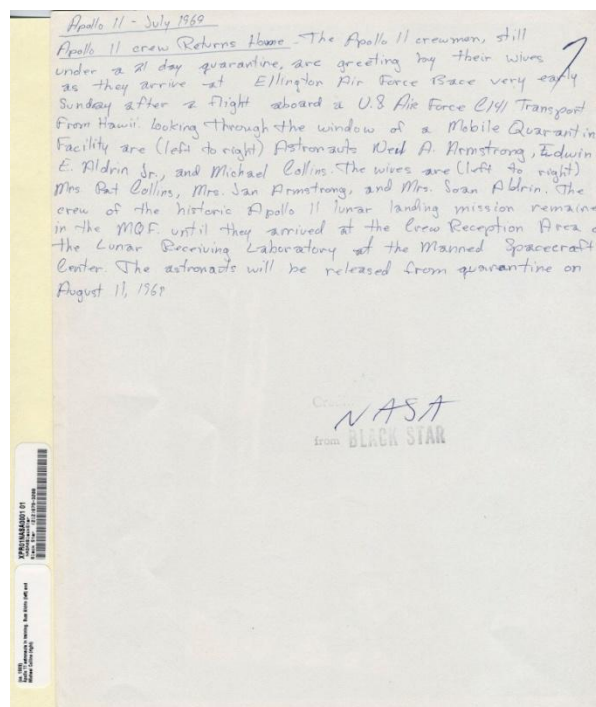 Apollo 11 - July 1969
Apollo 11 crew Returns Home. The Apollo 11 crewmen, still
under a 21 day quarantine, are greeting by their wives
as they arrive at Ellington Air Force Bace very early
Sunday after a flight aboard a U.S Air Force C141 Transport
From Hawii. Looking through the window of a Mobile Quarantin
Facility are (left to right) Astronauts Neil A. Armstrong, Edwin
E. Aldrin Jr., and Michael Collins. The wives are (left to right)
Mrs. Pat Collins, Mrs. Jan Armstrong, and Mrs. Joan Aldrin. The
crew of the historic Apollo 11 lunar landing mission remaine
in the MQF. until they arrived at the Crew Reception Area o
the Lunar Receiving Laboratory at the Manned Spacecraft
Center. The astronauts will be released from quarantine on
August 11, 1969
NASA
from BLACK STAR
XPR019NASA0001 01